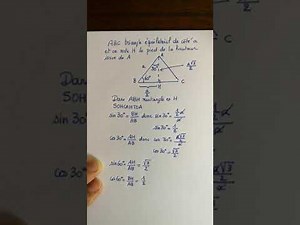 ABC triangle équilatéral de côté a
et on note H le pied de la hauteur
issue de A
A
a
30°
a√3
2
60°
B
H
C
a
2
Dans ABH rectangle en H
SOHCAHTOA
sin 30° = BH/AB donc sin 30° = (1/2 a)/a
sin 30° = 1/2
cos 30° = AH/AB donc cos 30° = (a√3/2)/a
cos 30° = √3/2
sin 60° = AH/AB = √3/2
cos 60° = BH/AB = 1/2